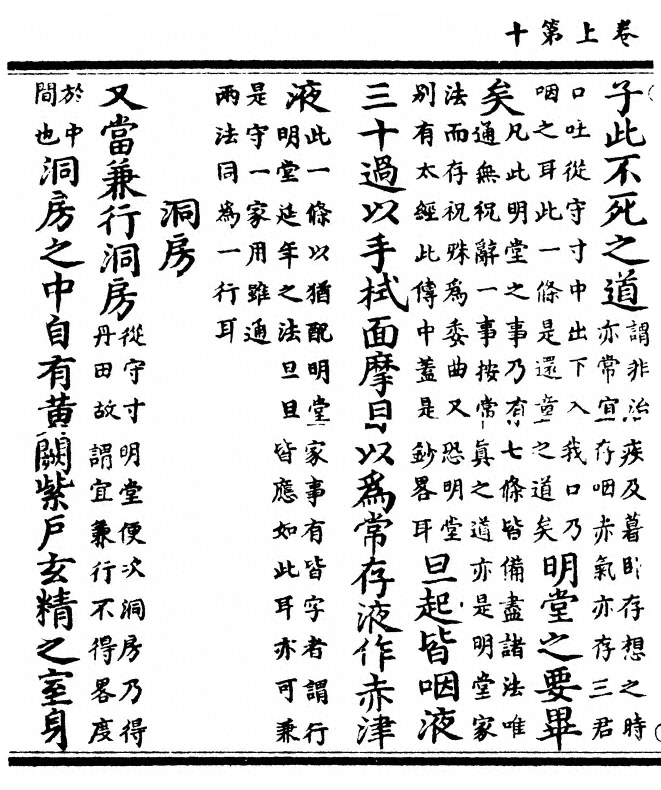 卷上第十
子此不死之道謂非治疾及暮卧存想之時亦常宜存咽赤氣亦存三君
口吐從守寸中出下入我口乃咽之耳此一條是還童之道矣明堂之要畢
矣凡此明堂之事乃有七條皆備盡諸法唯通無祝辭一事按常真之道亦是明堂家
法而存祝殊爲委曲又恐明堂別有太經此傳中蓋是鈔畧耳旦起皆咽液
三十過以手拭面摩目以爲常存液作赤津
液此一條以猶配明堂家事有皆字者謂行明堂延年之法旦旦皆應如此耳亦可兼
是守一家用雖通兩法同爲一行耳
洞房
又當兼行洞房從守寸明堂便次洞房乃得丹田故謂宜兼行不得畧度
於中間也洞房之中自有黃闕紫戶玄精之室身